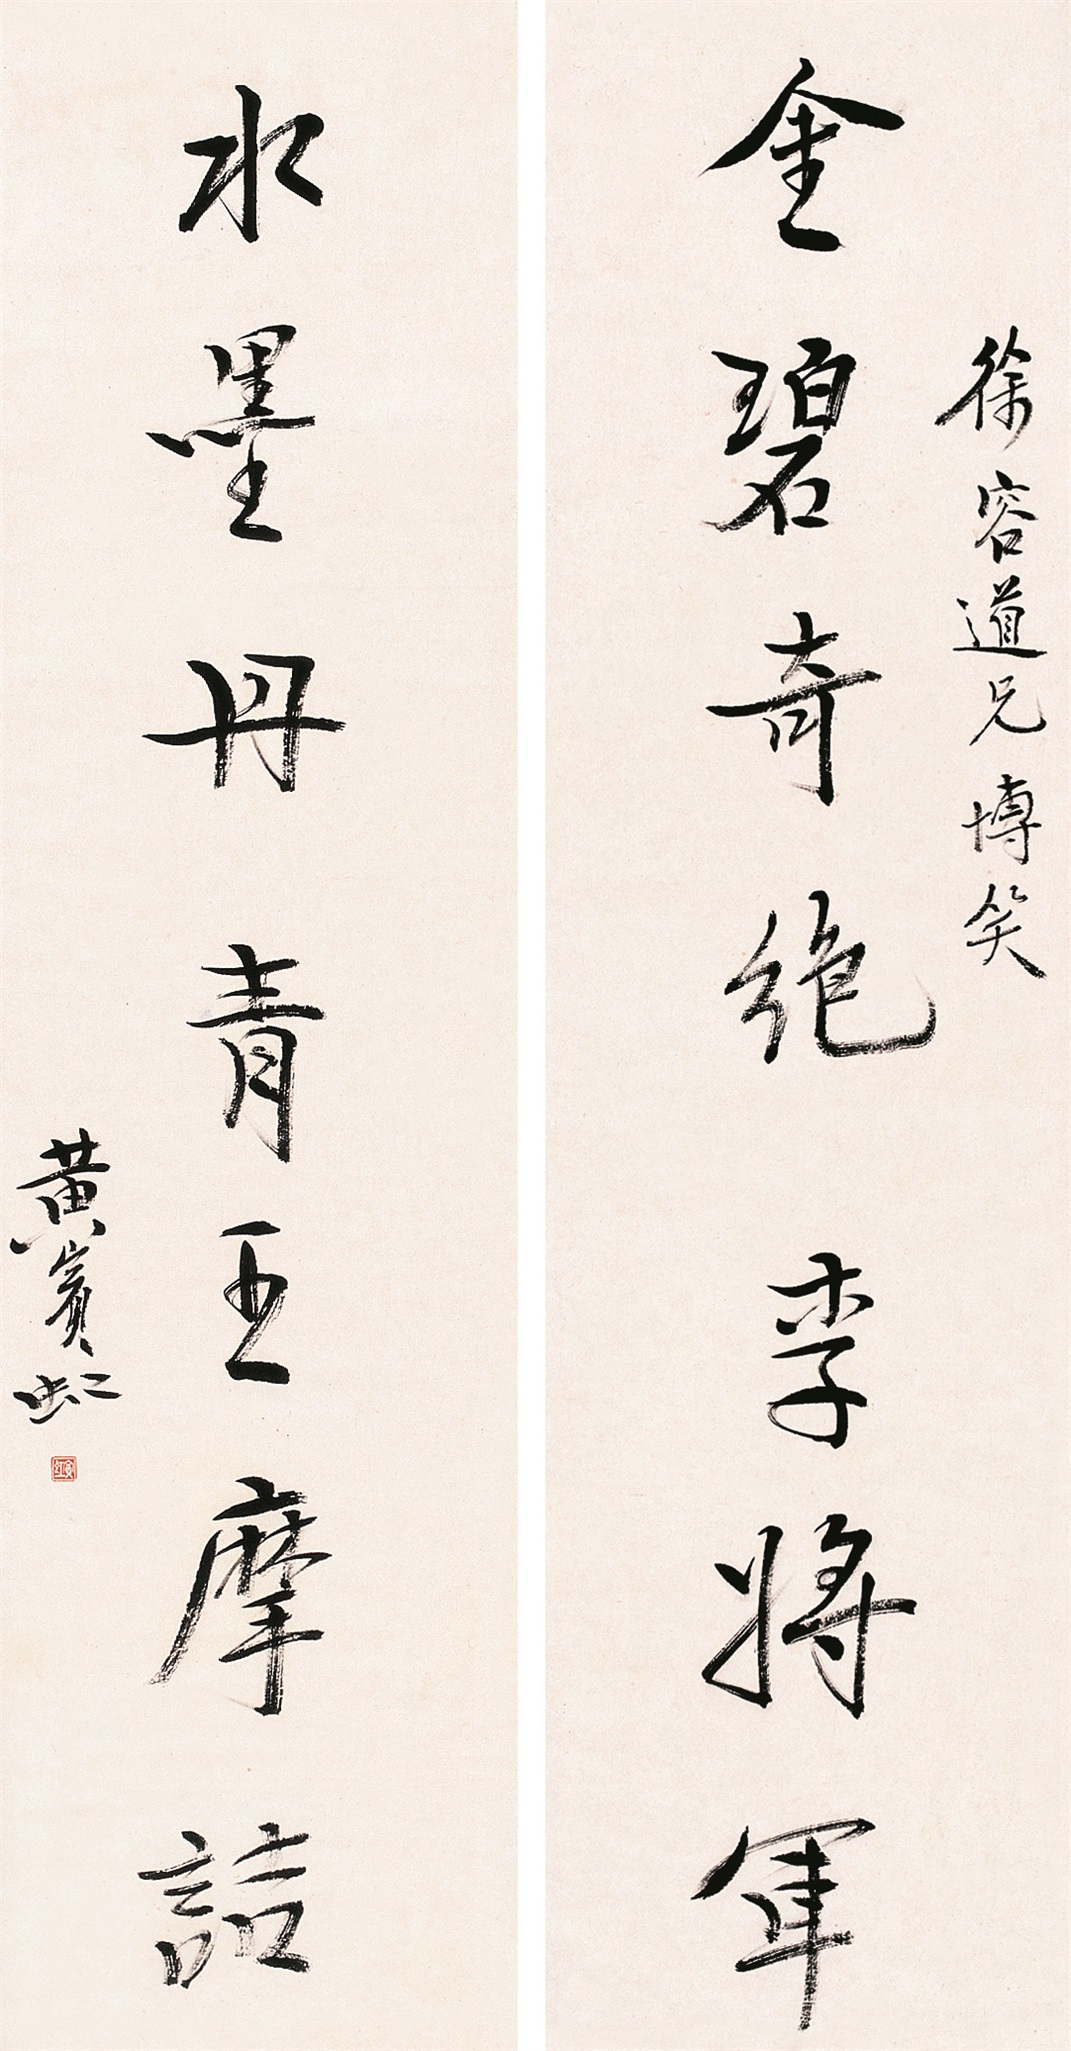 徐容道兄博笑
金碧奇绝李將軍
水墨丹青王摩詰
黃賓虹